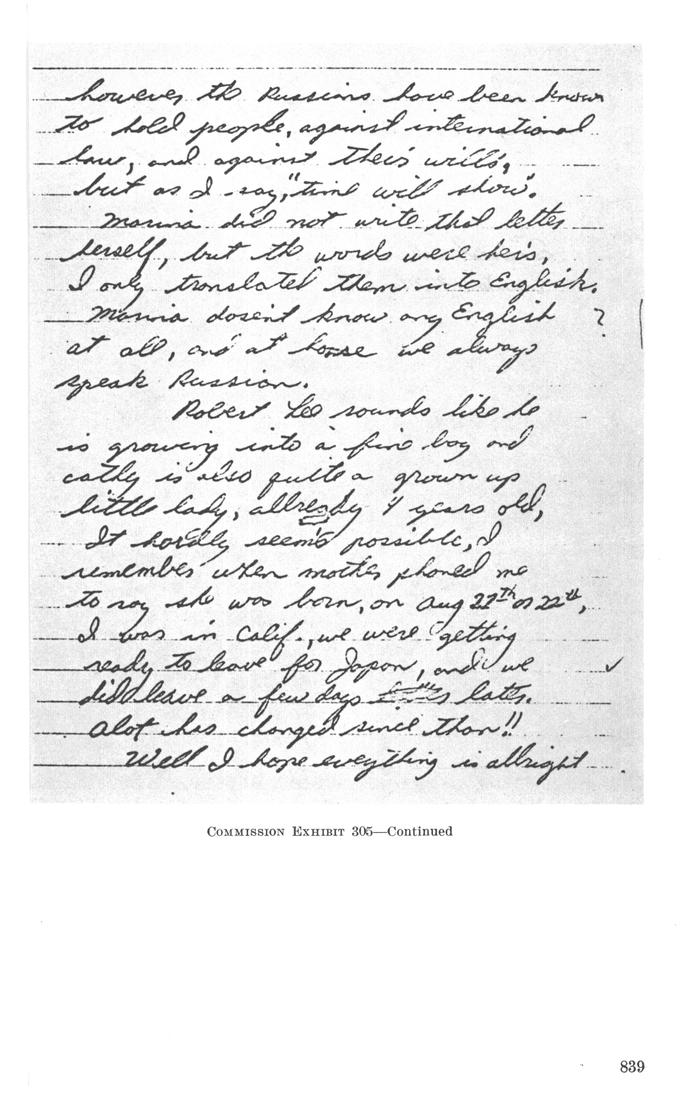 however, the Russians have been known
to hold people, against international
law, and against their wills,
but as I say, "time will show".
Marina did not write that letter
herself, but the words were hers,
I only translated them into English.
Marina dosent know any English ?
at all, and at home we always
speak Russian.
Robert Lee sounds like he
is growing into a fine boy and
cathy is also quite a grown up
little lady, allready 4 years old,
It hardly seems possible, I
remember when mother phoned me
to say she was born, on Aug 22th
I was in Calif., we were getting
ready to leave for Japan, and we ✓
did leave a few days later.
alot has changed since than!!
Well I hope eveything is allright
COMMISSION EXHIBIT 305—Continued
839